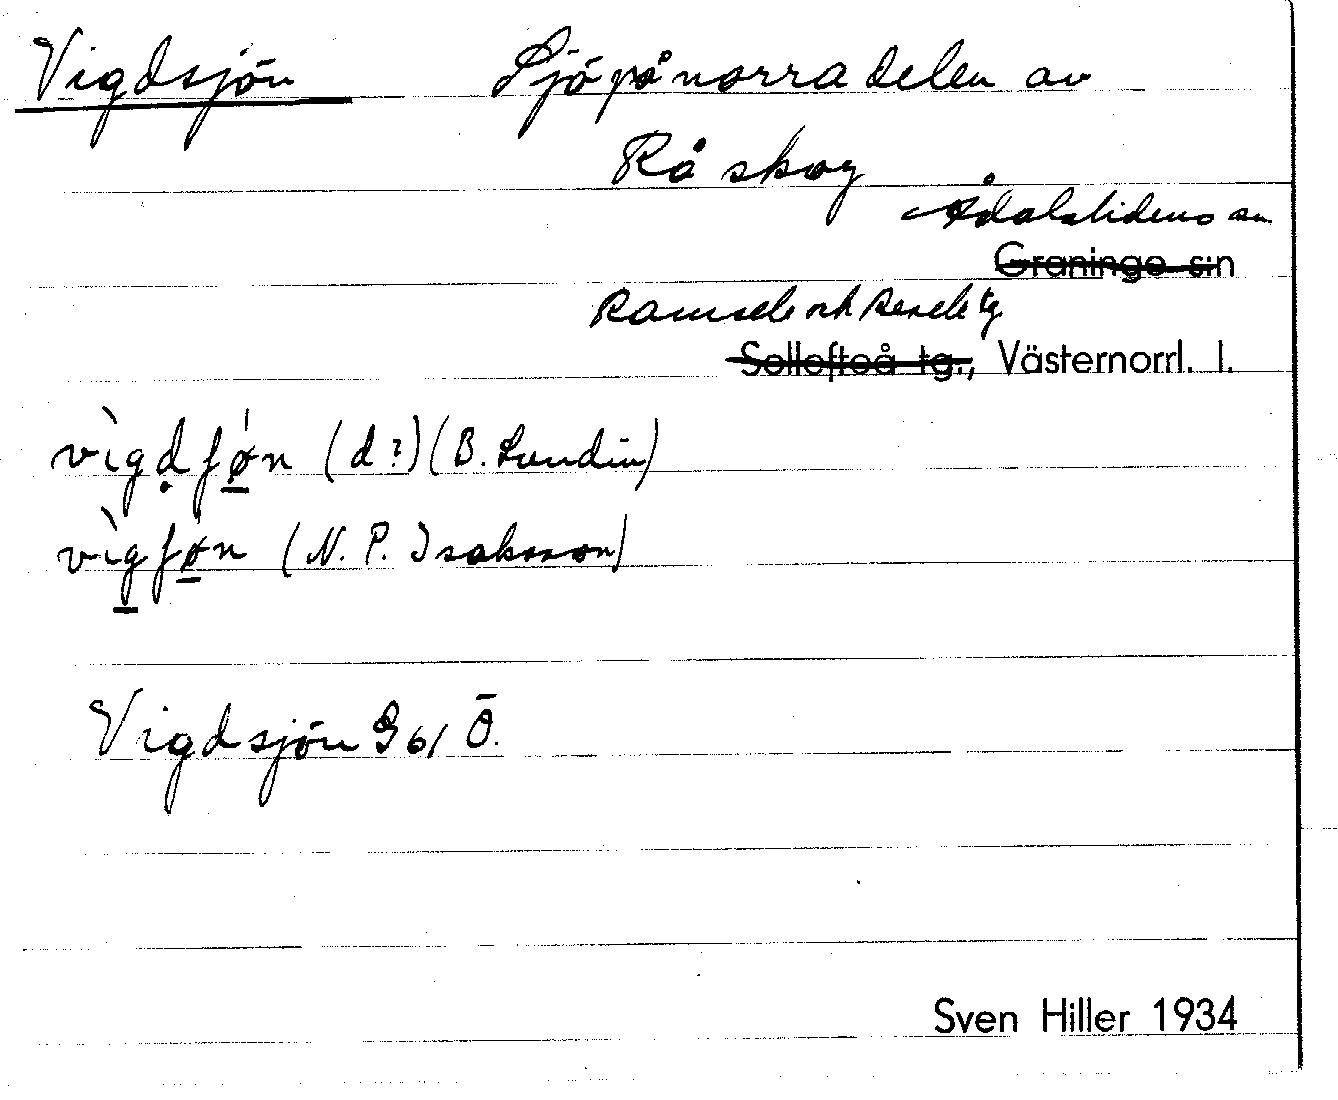 Vigdsjön Sjö på norra delen av
Rå skog
Ådalslidens sn
Graninge s:n
Ramsele och Resele tg
Sollefteå tg., Västernorrl. l.
vìgḍʃøn (d?) (B. Lundin)
vìgʃøn (N. P. Isaksson)
Vigdsjön G 61 Ö.
Sven Hiller 1934